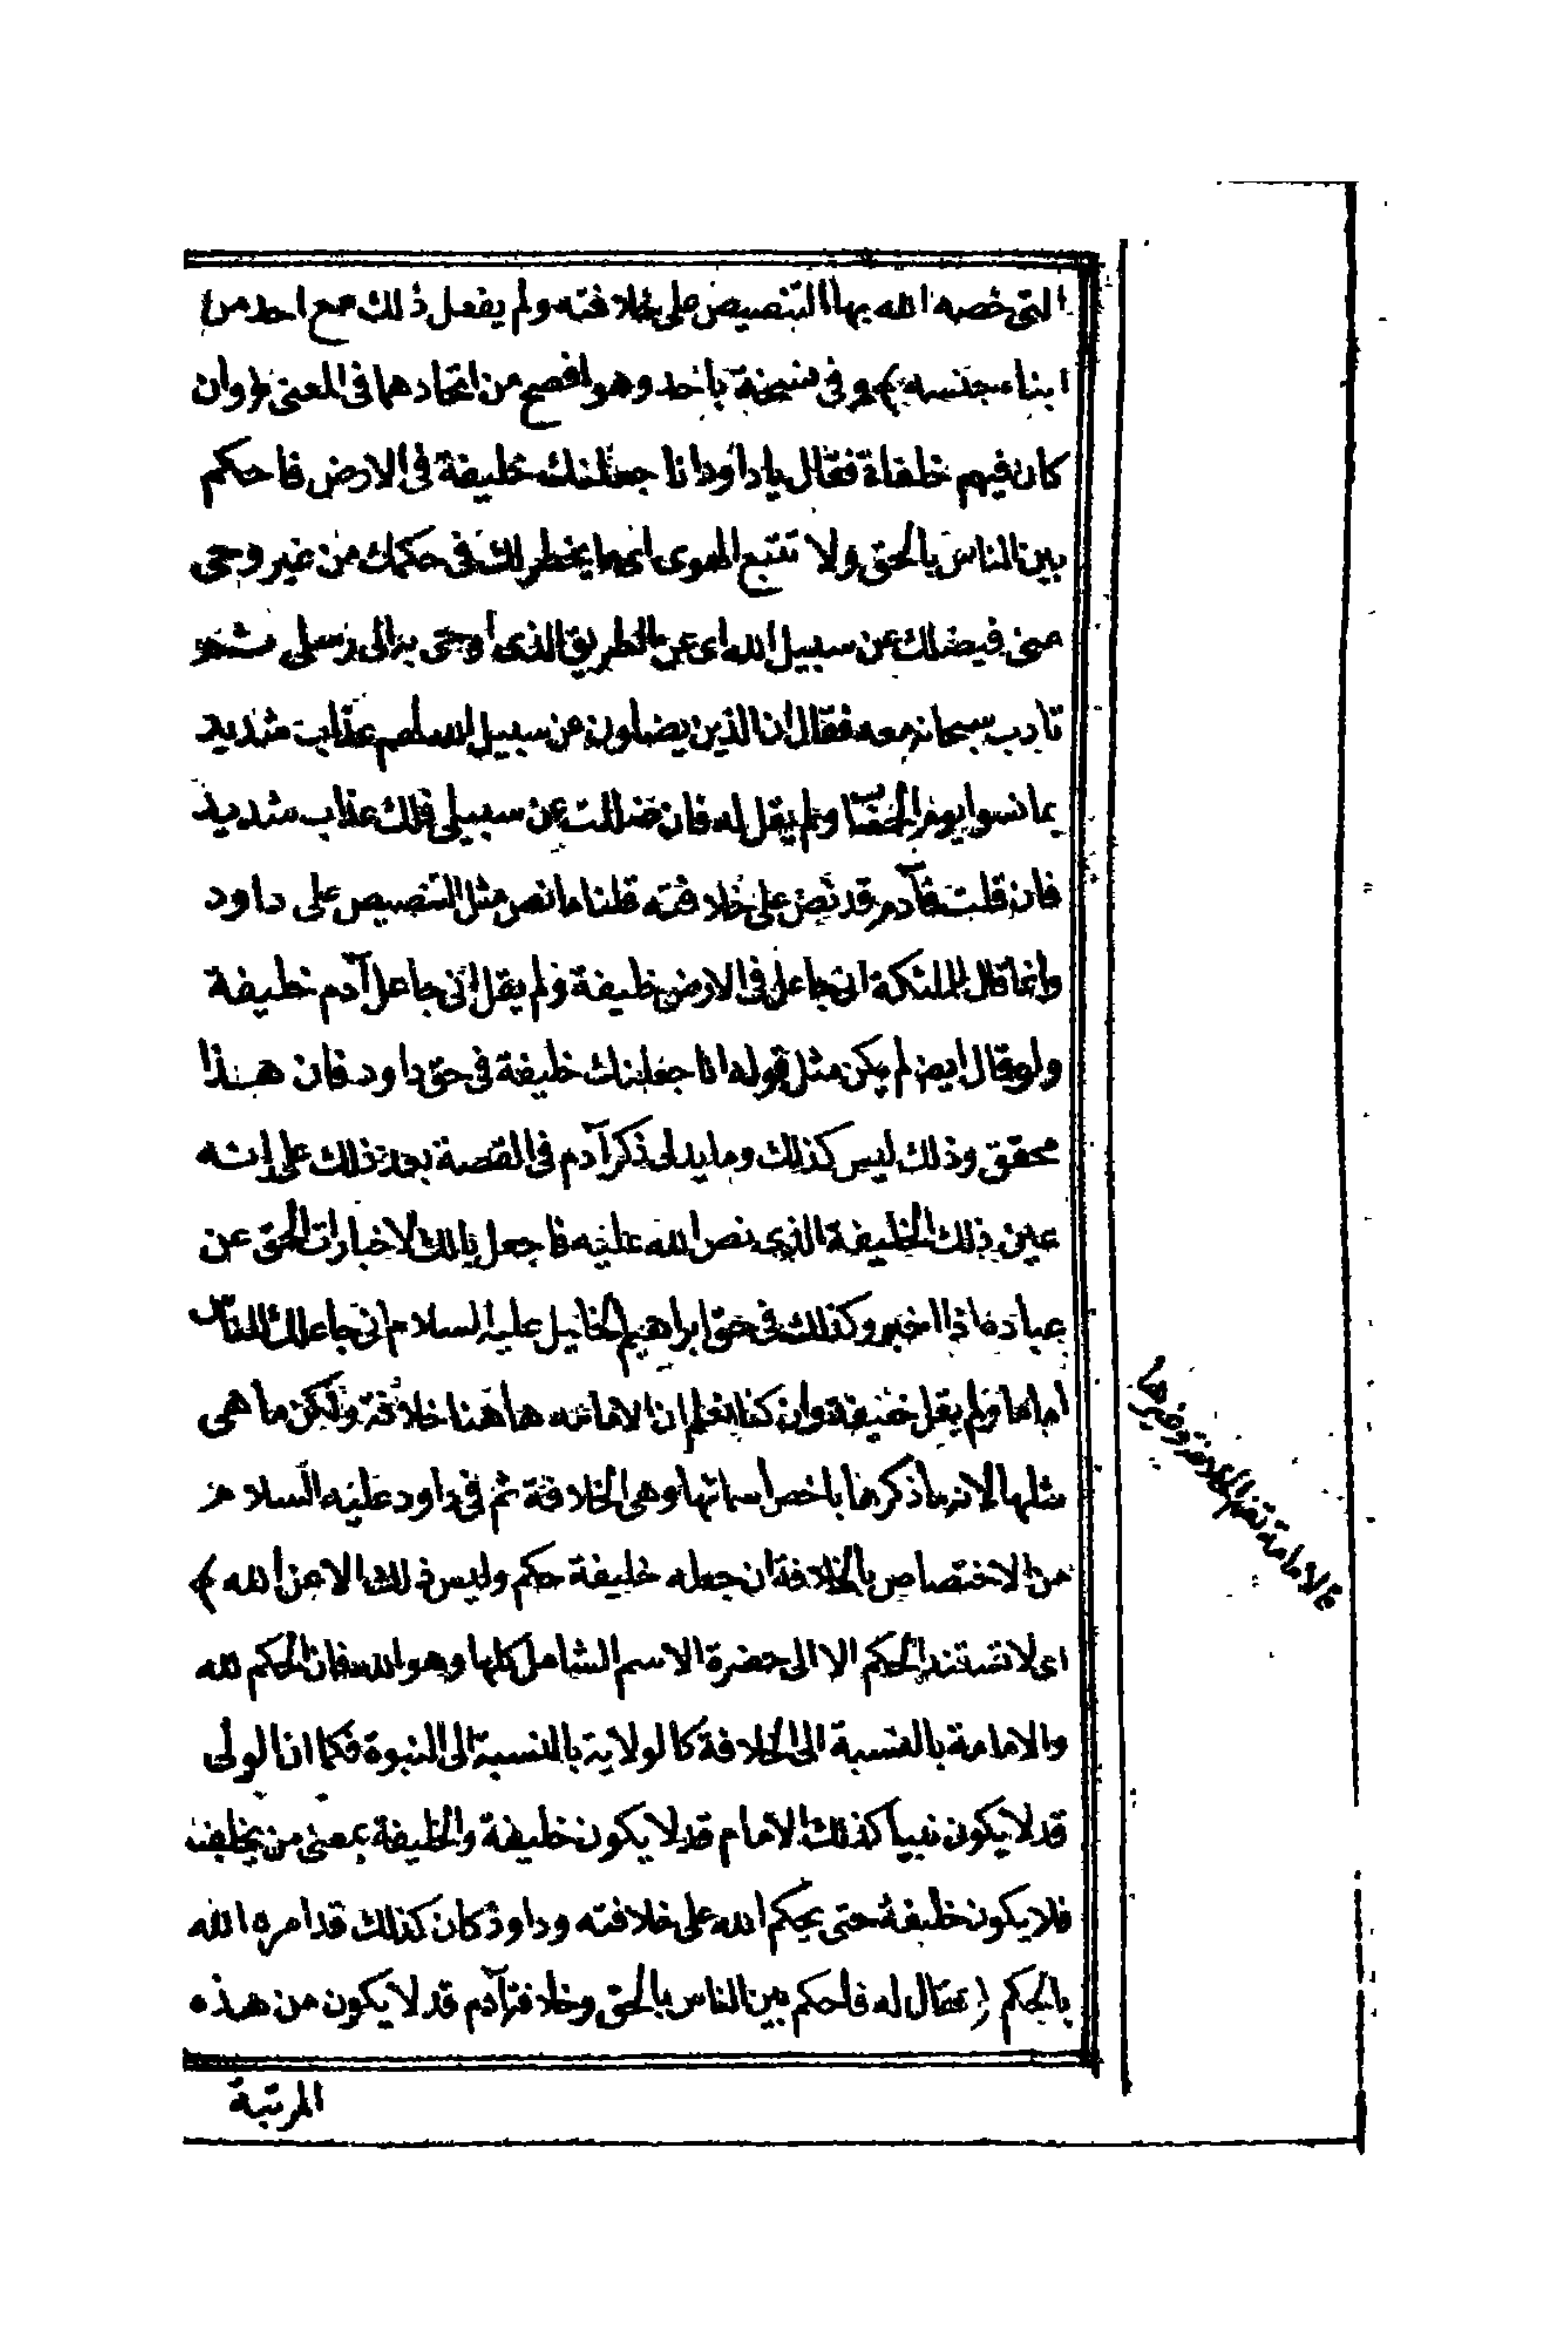 التى خصه الله بها التنصيص على خلافته ولم يفعل ذلك مع احد من
ابناء جنسه ﴾ وفى نسخة باحد وهو افصح من اتحادهما فى المعنى ﴿ وان
كان فيهم خلفاء فقال يا داود انا جعلنك خليفة فى الارض فاحكم
بين الناس بالحق ولا تتبع الهوى اى ما يخطر لك فى حكمك من غير وحى
منى فيضلك عن سبيل الله اى عن الطريق الذى اوحى به الى رسلى ثم
تادب سبحانه معه فقال ان الذين يضلون عن سبيل الله لهم عذاب شديد
بما نسوا يوم الحساب ولم يقل له فان ضللت عن سبيلى فلك عذاب شديد
فان قلت فآدم قد نص على خلافته قلنا ما نص مثل التنصيص على داود
وانما قال للملئكة انى جاعل فى الارض خليفة ولم يقل انى جاعل آدم خليفة
ولو قال ايضا لم يكن مثل قوله انا جعلنك خليفة فى حق داود فان هذا
محقق وذلك ليس كذلك وما يدل ذكر آدم فى القصة بعد ذلك على انه
عين ذلك الخليفة الذى نص الله عليه فاجعل بالك لاخبارات الحق عن
عباده اذا اخبر وكذلك فى حق ابراهيم الخليل عليه السلام انى جاعلك للناس
اماما ولم يقل خليفة وان كنا نعلم ان الامامه هاهنا خلافة ولكن ما هى
مثلها لانه ما ذكرها باخص اسمائها وهى الخلافة ثم فى داود عليه السلام
من الاختصاص بالخلافة ان جعله خليفة حكم وليس ذلك الا عن الله ﴾
اى لا تستند الحكم الا الى حضرة الاسم الشامل كلها وهو الله فان الحكم لله
والامامة بالنسبة الى الخلافة كالولاية بالنسبة الى النبوة فكما ان الولى
قد لا يكون نبيا كذلك الامام قد لا يكون خليفة والخليفة بمعنى من يخلف
فلا يكون خليفة حتى يحكم الله على خلافته وداود كان كذلك قد امره الله
بالحكم ﴿ فقال له فاحكم بين الناس بالحق وخلافة آدم قد لا يكون من هذه
المرتبة
الامامة تعم الخلافة وغيرها